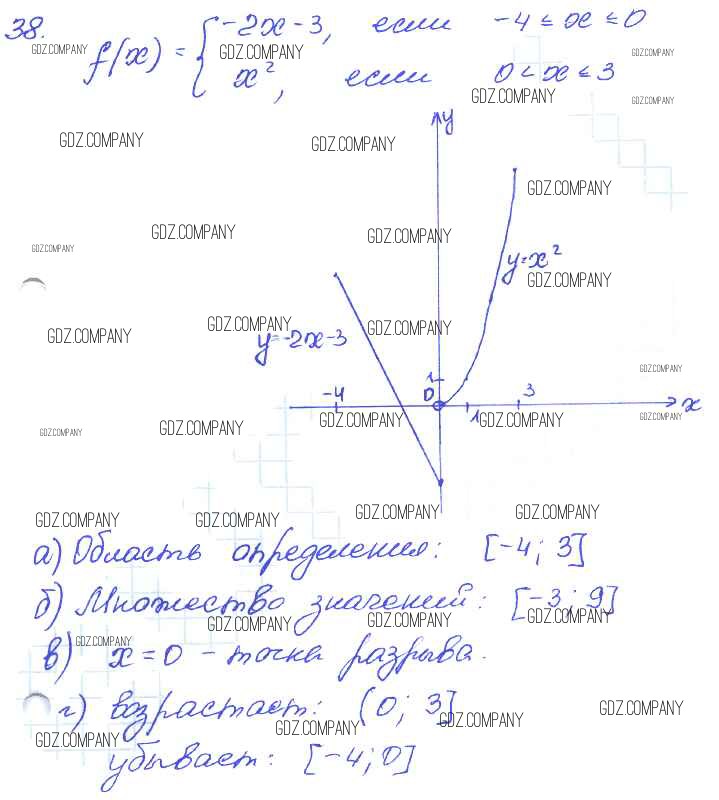 38.
f(x) = { -2x-3, если -4 ≤ x ≤ 0
x², если 0 < x ≤ 3
GDZ.COMPANY GDZ.COMPANY GDZ.COMPANY
GDZ.COMPANY GDZ.COMPANY
y
GDZ.COMPANY GDZ.COMPANY
GDZ.COMPANY
GDZ.COMPANY GDZ.COMPANY
GDZ.COMPANY
y=x²
GDZ.COMPANY
GDZ.COMPANY GDZ.COMPANY GDZ.COMPANY
y=-2x-3
GDZ.COMPANY
1
-4 0 3
x
GDZ.COMPANY GDZ.COMPANY GDZ.COMPANY 1 GDZ.COMPANY GDZ.COMPANY
GDZ.COMPANY GDZ.COMPANY GDZ.COMPANY GDZ.COMPANY
а) Область определения: [-4; 3]
б) Множество значений: [-3; 9]
GDZ.COMPANY GDZ.COMPANY GDZ.COMPANY
GDZ.COMPANY
в) x = 0 - точка разрыва.
г) возрастает: (0; 3]
GDZ.COMPANY GDZ.COMPANY GDZ.COMPANY
GDZ.COMPANY
убывает: [-4; 0]